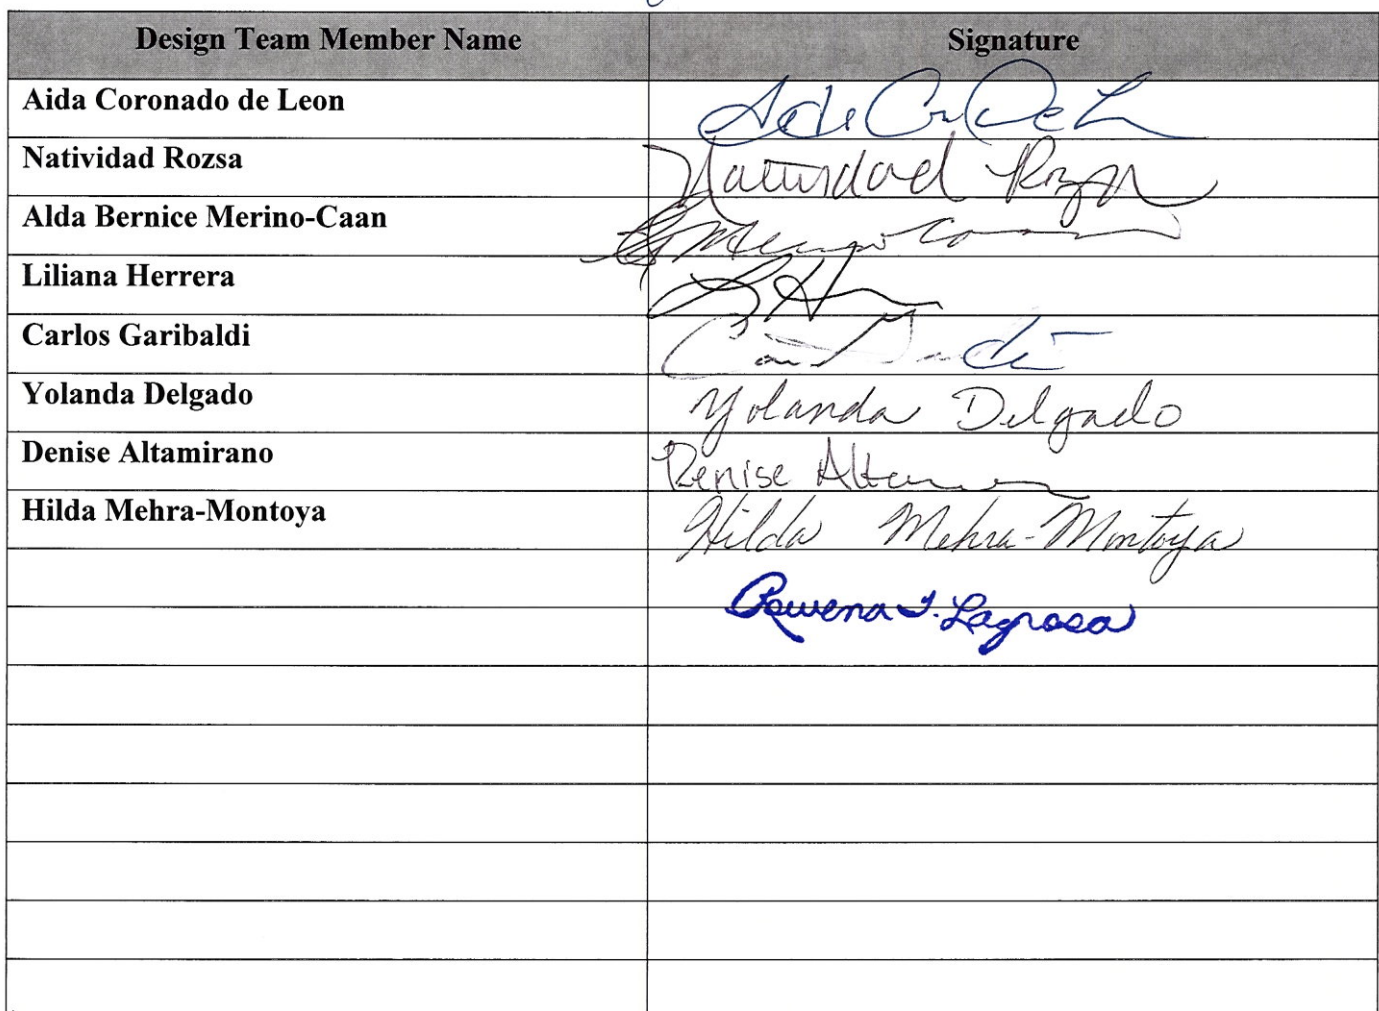 Design Team Member Name Signature
Aida Coronado de Leon
Natividad Rozsa Natividad Rozsa
Alda Bernice Merino-Caan
Liliana Herrera
Carlos Garibaldi
Yolanda Delgado Yolanda Delgado
Denise Altamirano Denise
Hilda Mehra-Montoya Hilda Mehra-Montoya
Rowena T. Lagrosa